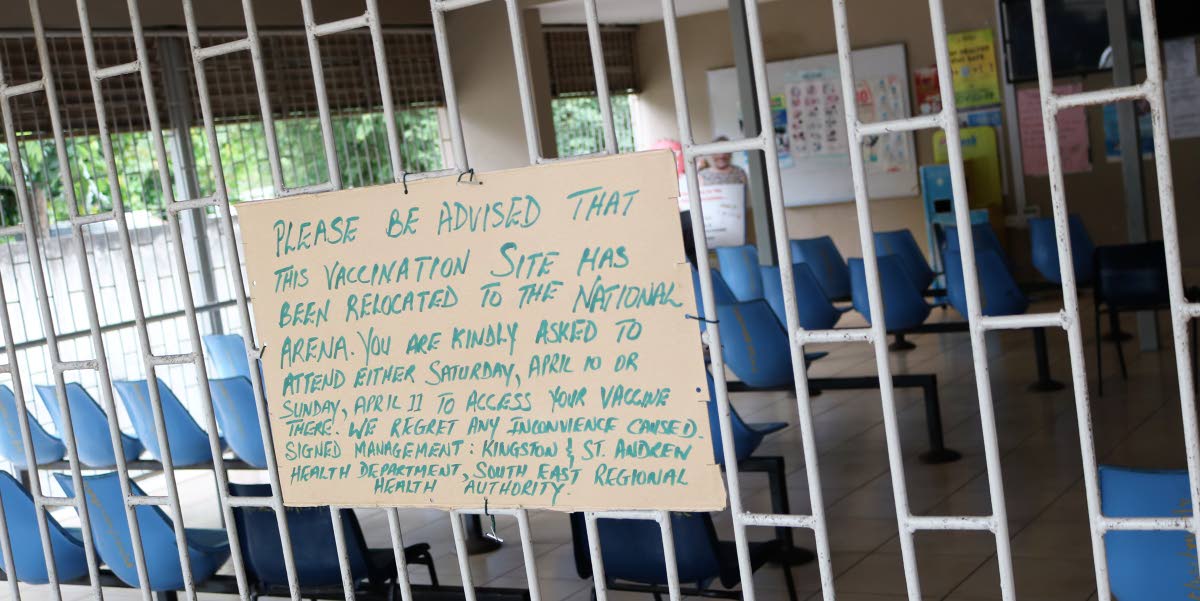 PLEASE BE ADVISED THAT
THIS VACCINATION SITE HAS
BEEN RELOCATED TO THE NATIONAL
ARENA. YOU ARE KINDLY ASKED TO
ATTEND EITHER SATURDAY, APRIL 10 OR
SUNDAY, APRIL 11 TO ACCESS YOUR VACCINE
THERE. WE REGRET ANY INCONVIENCE CAUSED.
SIGNED MANAGEMENT: KINGSTON & ST. ANDREW
HEALTH DEPARTMENT, SOUTH EAST REGIONAL
HEALTH AUTHORITY.